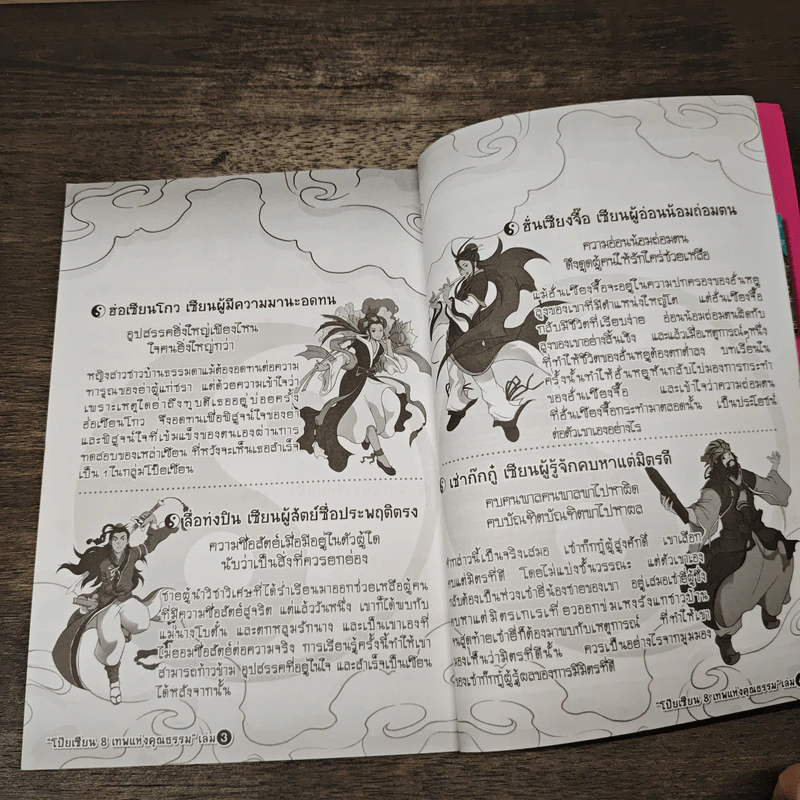 ฮ่อเซียนโกว เซียนผู้มีความมานะอดทน
อุปสรรคยิ่งใหญ่เพียงไหน
ใจคนยิ่งใหญ่กว่า
หญิงสาวชาวบ้านธรรมดาแม้ต้องอดทนต่อความ
ทารุณของย่าผู้แก่ชรา แต่ด้วยความเข้าใจว่า
เพราะเหตุใดย่าถึงทุบตีเธออยู่บ่อยครั้ง
ฮ่อเซียนโกว จึงอดทนเพื่อพิสูจน์ใจของย่า
และพิสูจน์ใจที่เข้มแข็งของตนเองผ่านการ
ทดสอบของเหล่าเซียน ที่หวังจะเห็นเธอสำเร็จ
เป็น 1 ในกลุ่มโป๊ยเซียน
ลื่อท่งปิน เซียนผู้สัตย์ซื่อประพฤติตรง
ความซื่อสัตย์เมื่อมีอยู่ในตัวผู้ใด
นับว่าเป็นสิ่งที่ควรยกย่อง
ชายผู้นำวิชาวิเศษที่ได้ร่ำเรียนมาออกช่วยเหลือผู้คน
ที่มีความซื่อสัตย์สุจริต แต่แล้ววันหนึ่ง เขาก็ได้พบกับ
แม่นางโบตั๋น และตกหลุมรักนาง และเป็นเขาเองที่
ไม่ยอมซื่อสัตย์ต่อความจริง การเรียนรู้ครั้งนี้ทำให้เขา
สามารถก้าวข้าม อุปสรรคที่อยู่ในใจ และสำเร็จเป็นเซียน
ได้หลังจากนั้น
"โป๊ยเซียน 8 เทพแห่งคุณธรรม" เล่ม 3
ฮั่นเซียงจื๊อ เซียนผู้อ่อนน้อมถ่อมตน
ความอ่อนน้อมถ่อมตน
ดึงดูดผู้คนให้รักใคร่ช่วยเหลือ
แม้ฮั่นเซียงจื๊อจะอยู่ในความปกครองของฮั่นหยู
ลุงของเขาที่มีตำแหน่งใหญ่โต แต่ฮั่นเซียงจื๊อ
กลับมีชีวิตที่เรียบง่าย อ่อนน้อมถ่อมตนผิดกับ
ลุงของเขาอย่างสิ้นเชิง และแล้วเมื่อเหตุการณ์หนึ่ง
ที่ทำให้ชีวิตของฮั่นหยูต้องตกต่ำลง บทเรียนใน
ครั้งนั้นทำให้ฮั่นหยูหันกลับไปมองการกระทำ
ของฮั่นเซียงจื๊อ และเข้าใจว่าความถ่อมตน
ที่ฮั่นเซียงจื๊อกระทำมาตลอดนั้น เป็นประโยชน์
ต่อตัวเขาเองอย่างไร
เช่าก๊กกู๋ เซียนผู้รู้จักคบหาแต่มิตรดี
คบคนพาลคนพาลพาไปหาผิด
คบบัณฑิตบัณฑิตพาไปหาผล
กล่าวนี้เป็นจริงเสมอ เช่าก๊กกู๋ผู้สูงศักดิ์ เขาเลือก
คบแต่มิตรที่ดี โดยไม่แบ่งชั้นวรรณะ แต่ตัวเขาเอง
กลับต้องเป็นห่วงเช่ายี่น้องชายของเขา อยู่เสมอเช่ายี่ผู้ซึ่ง
คบหาแต่มิตรเกเรเที่ยวออกข่มเหงรังแกชาวบ้าน
นสุดท้ายเช่ายี่ก็ต้องมาพบกับเหตุการณ์ ที่ทำให้เขา
องเห็นว่ามิตรที่ดีนั้น ควรเป็นอย่างไรจากมุมมอง
ของเช่าก๊กกู๋ผู้รู้ผลของการมีมิตรที่ดี
"โป๊ยเซียน 8 เทพแห่งคุณธรรม" เล่ม